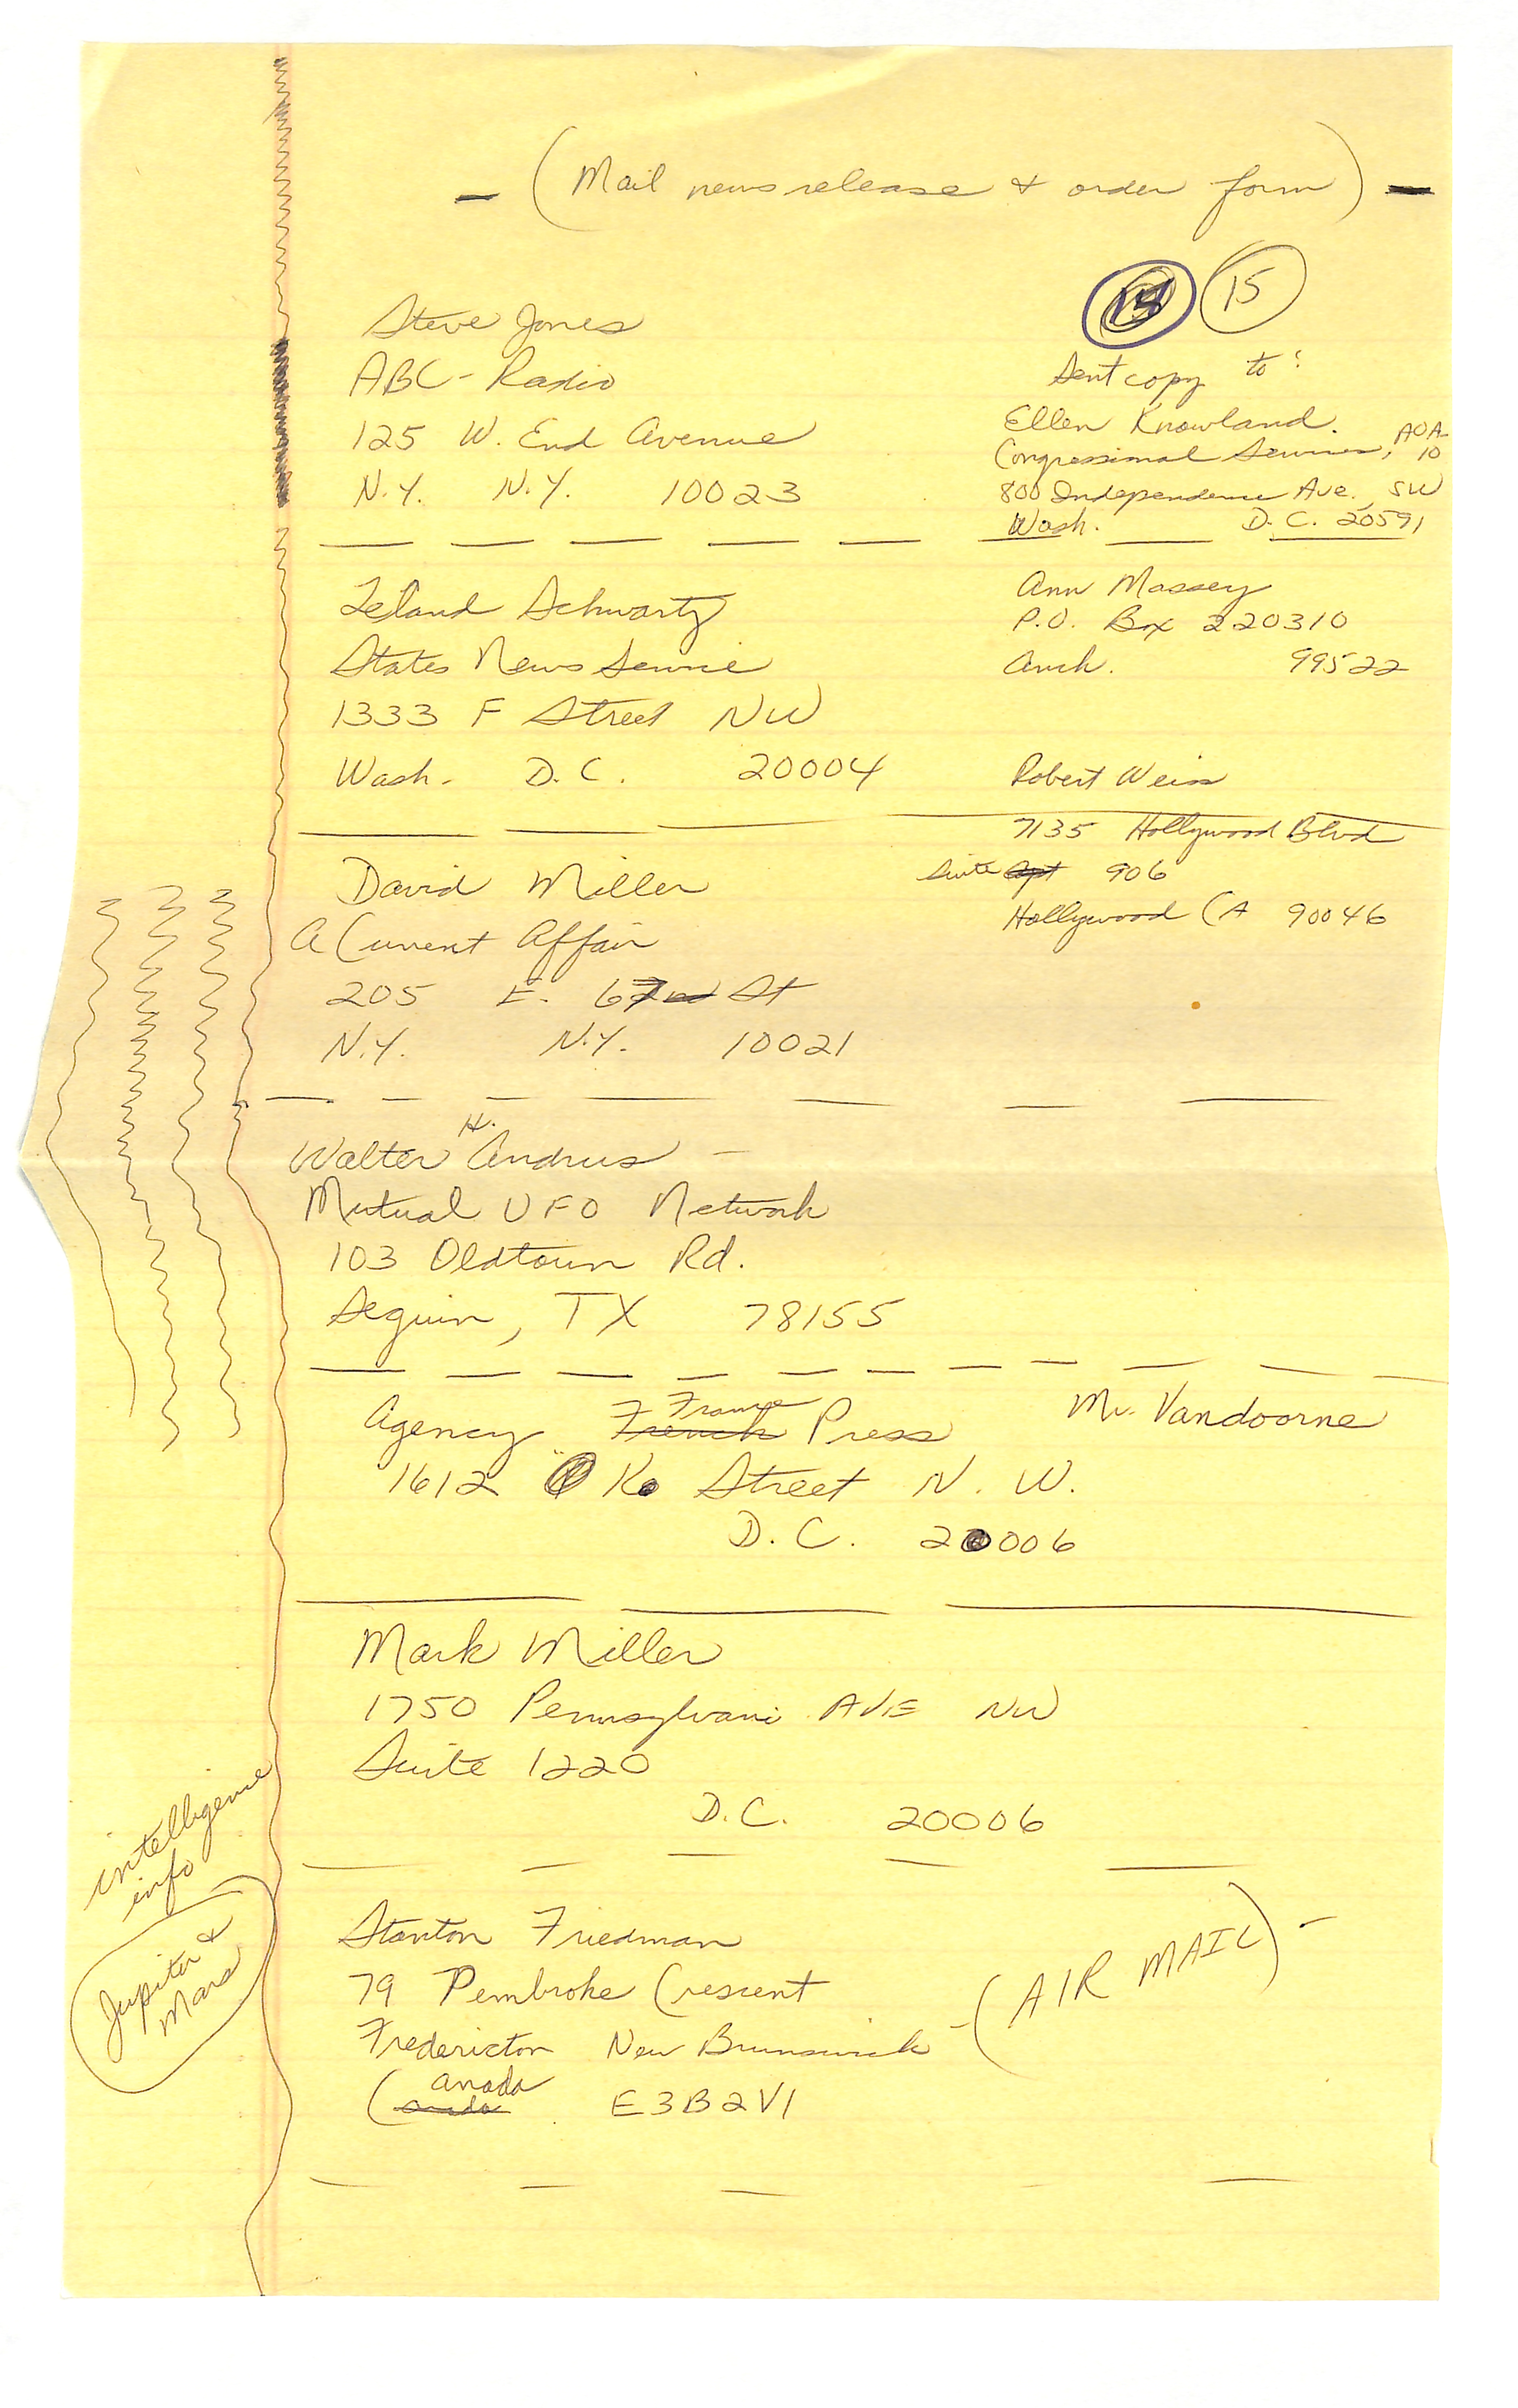 — (Mail news release & order form) —
15
Steve Jones
ABC - Radio
125 W. End Avenue
N.Y. N.Y. 10023
Sent copy to:
Ellen Knowland.
Congressional Services, AOA-10
800 Independence Ave. SW
Wash. D.C. 20591
Leland Schwartz
States News Service
1333 F Street NW
Wash. D.C. 20004
Ann Massey
P.O. Box 220310
Anch. 99522
Robert Weiss
7135 Hollywood Blvd
Suite 906
Hollywood CA 90046
David Miller
A Current Affair
205 E. 67 St
N.Y. N.Y. 10021
Walter H. Andrus —
Mutual UFO Network
103 Oldtown Rd.
Seguin, TX 78155
Agency France Press
Mr. Vandoorne
1612 K Street N.W.
D.C. 20006
Mark Miller
1750 Pennsylvani AVE NW
Suite 1220
D.C. 20006
intelligence
info
Jupiter &
Mars
Stanton Friedman
79 Pembroke Crescent
Fredericton New Brunswick - (AIR MAIL) -
Canada E3B2V1